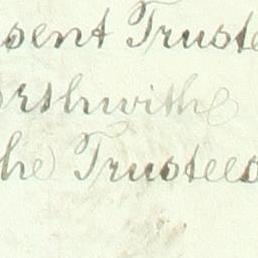 sent Truste
orthwith
the Trustees